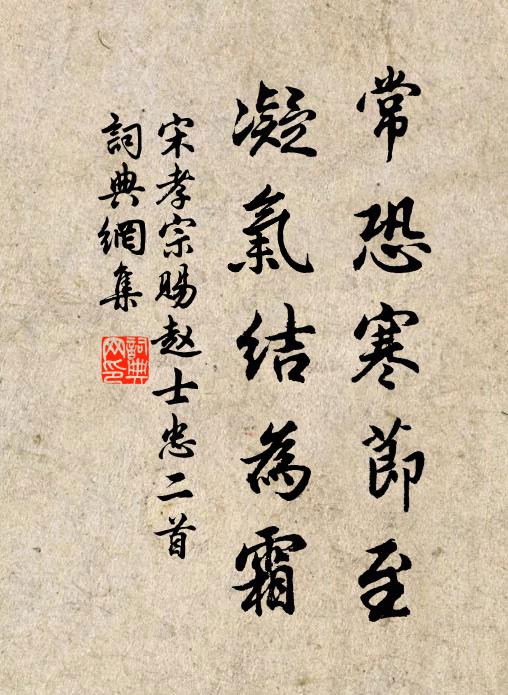 常恐寒節至
凝氣結為霜
宋孝宗賜赵士忠二首
詞典網集
詞典网印